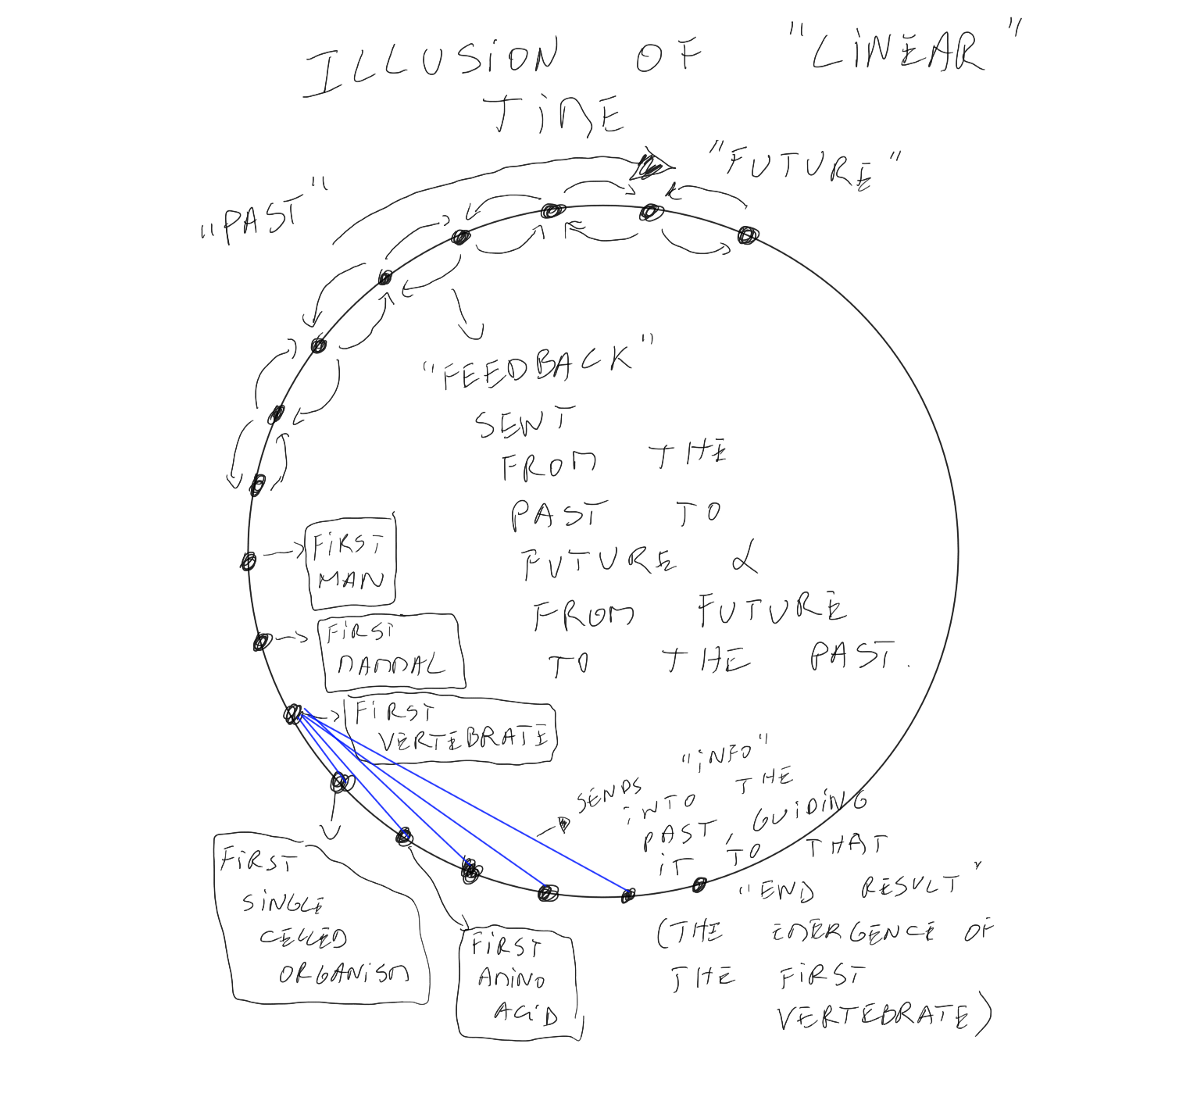 ILLUSION OF "LINEAR"
TIME
"PAST"
"FUTURE"
"FEEDBACK"
SENT
FROM THE
PAST TO
FUTURE &
FROM FUTURE
TO THE PAST.
FIRST
MAN
FIRST
MAMMAL
FIRST
VERTEBRATE
SENDS "INFO"
INTO THE
PAST, GUIDING
IT TO THAT
"END RESULT"
(THE EMERGENCE OF
THE FIRST
VERTEBRATE)
FIRST
SINGLE
CELLED
ORGANISM
FIRST
AMINO
ACID